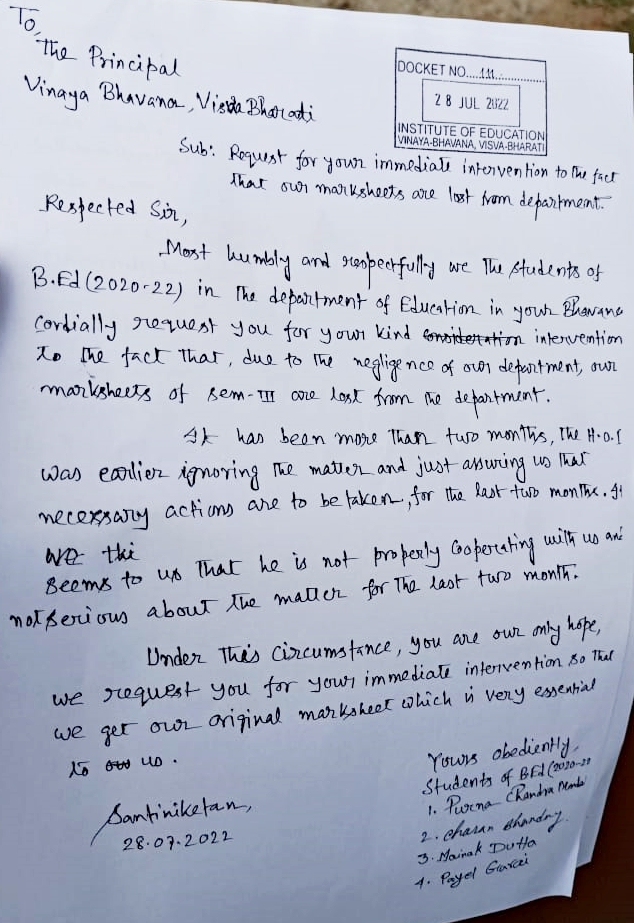 To,
The Principal
Vinaya Bhavana, Visva Bharati
DOCKET NO....111..............
28 JUL 2022
INSTITUTE OF EDUCATION
VINAYA-BHAVANA, VISVA-BHARATI
Sub: Request for your immediate intervention to the fact
that our marksheets are lost from department.
Respected Sir,
Most humbly and respectfully we the students of
B.Ed (2020-22) in the department of Education in your Bhavana
Cordially request you for your kind consideration intervention
to the fact that, due to the negligence of our department, our
marksheets of sem-III are lost from the department.
It has been more than two months, the H.O.
was earlier ignoring the matter and just assuring us that
necessary actions are to be taken, for the last two months. It
we thi
seems to us that he is not properly Cooperating with us and
not serious about the matter for the last two month.
Under this circumstance, you are our only hope,
we request you for your immediate intervention so that
we get our original marksheet which is very essential
to our us.
Santiniketan,
28.07.2022
Yours obediently,
Students of B.Ed (2020-22
1. Purna Chandra
2. Charan
3. Mainak Dutta
4. Payel